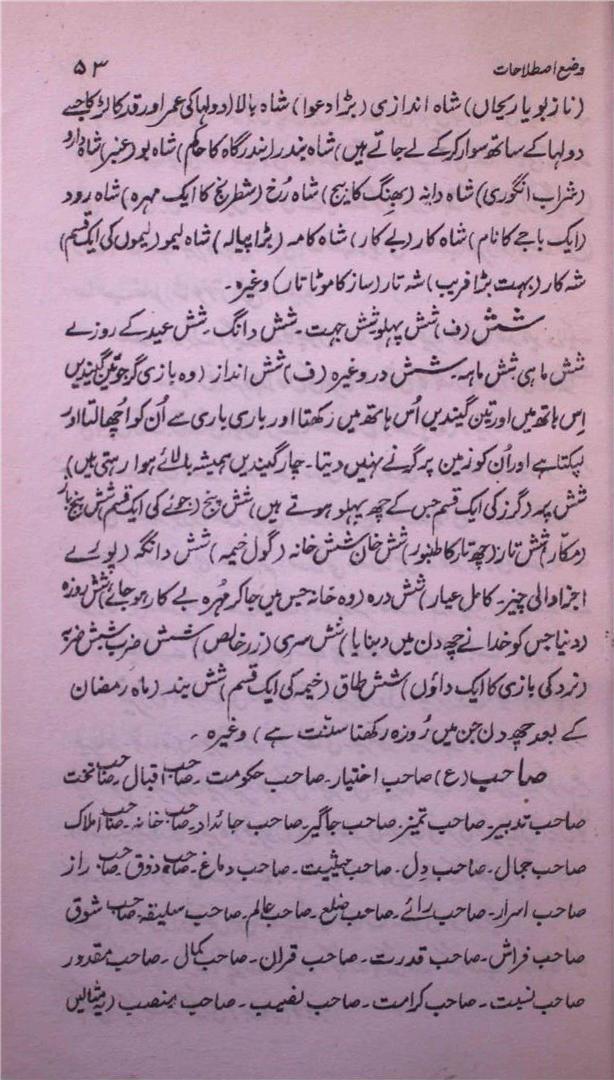 وضع اصطلاحات ۵۳
(نازبو یا ریحاں) شاہ اندازی (بڑا دعوا) شاہ بالا (دولہا کی عمر اور قد کا لڑکا جسے
دولہا کے ساتھ سوار کر کے لے جاتے ہیں) شاہ بندر (بندرگاہ کا حاکم) شاہ بو (عنبر) شاہ دارو
(شراب انگوری) شاہ دانہ (بھنگ کا بیج) شاہ رُخ (شطرنج کا ایک مہرہ) شاہ رود
(ایک باجے کا نام) شاہ کار (بے کار) شاہ کامہ (بڑا پیالہ) شاہ لیمو (لیموں کی ایک قسم)
شہ کار (بہت بڑا فریب) شہ تار (ساز کا موٹا تار) وغیرہ۔
شش (ف) شش پہلو شش جہت۔ شش دانگ۔ شش عید کے روزے
شش ماہی شش ماہہ۔ شش در وغیرہ (ف) شش انداز (وہ بازی گر جو تین گیندیں
اِس ہاتھ میں اور تین گیندیں اُس ہاتھ میں رکھتا اور باری باری سے اُن کو اُچھالتا اور
لپکتا ہے اور اُن کو زمین پر گرنے نہیں دیتا۔ چار گیندیں ہمیشہ بالائے ہوا رہتی ہیں)
شش پر (گرز کی ایک قسم جس کے چھ پہلو ہوتے ہیں) شش و پنج (جوئے کی ایک قسم) شش پنج باز
(مکّار) شش تار (چھ تار کا طنبور) شش خان شش خانہ (گول خیمہ) شش دانگہ (پورے
اجزا والی چیز۔ کامل عیار) شش درہ (وہ خانہ جس میں جا کر مُہرہ بے کار ہو جائے) شش روزہ
(دنیا جس کو خدا نے چھ دن میں بنایا) شش سری (زر خالص) شش ضرب شش ضربہ
(نرد کی بازی کا ایک داؤں) شش طاق (خیمہ کی ایک قسم) شش عید (ماہ رمضان
کے بعد چھ دن جن میں رُوزہ رکھنا سنّت ہے) وغیرہ۔
صاحب (ع) صاحب اختیار۔ صاحب حکومت۔ صاحب اقبال۔ صاحب تخت
صاحب تدبیر۔ صاحب تمیز۔ صاحب جاگیر۔ صاحب جائداد۔ صاحب خانہ۔ صاحب املاک
صاحب جمال۔ صاحب دِل۔ صاحب حیثیت۔ صاحب دماغ۔ صاحب ذوق۔ صاحب راز
صاحب اسرار۔ صاحب رائے۔ صاحب ضلع۔ صاحب عالم۔ صاحب سلیقہ۔ صاحب شوق
صاحب فراش۔ صاحب قدرت۔ صاحب قران۔ صاحب کمال۔ صاحب مقدور
صاحب نسبت۔ صاحب کرامت۔ صاحب نصیب۔ صاحب منصب (یہ مثالیں